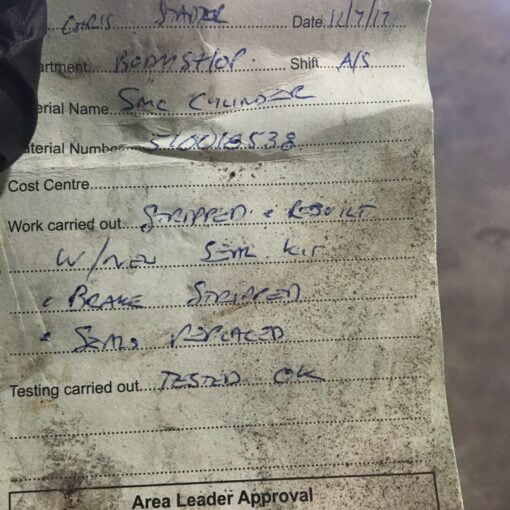 CHRIS Date 12/7/17
artment BODYSHOP. Shift A/S
erial Name SMC CYLINDER
aterial Number 510018538
Cost Centre
Work carried out STRIPPED & REBUILT
W/NEW SEAL KIT
• BRAKE STRIPPED
• SEALS REPLACED
Testing carried out TESTED OK
Area Leader Approval